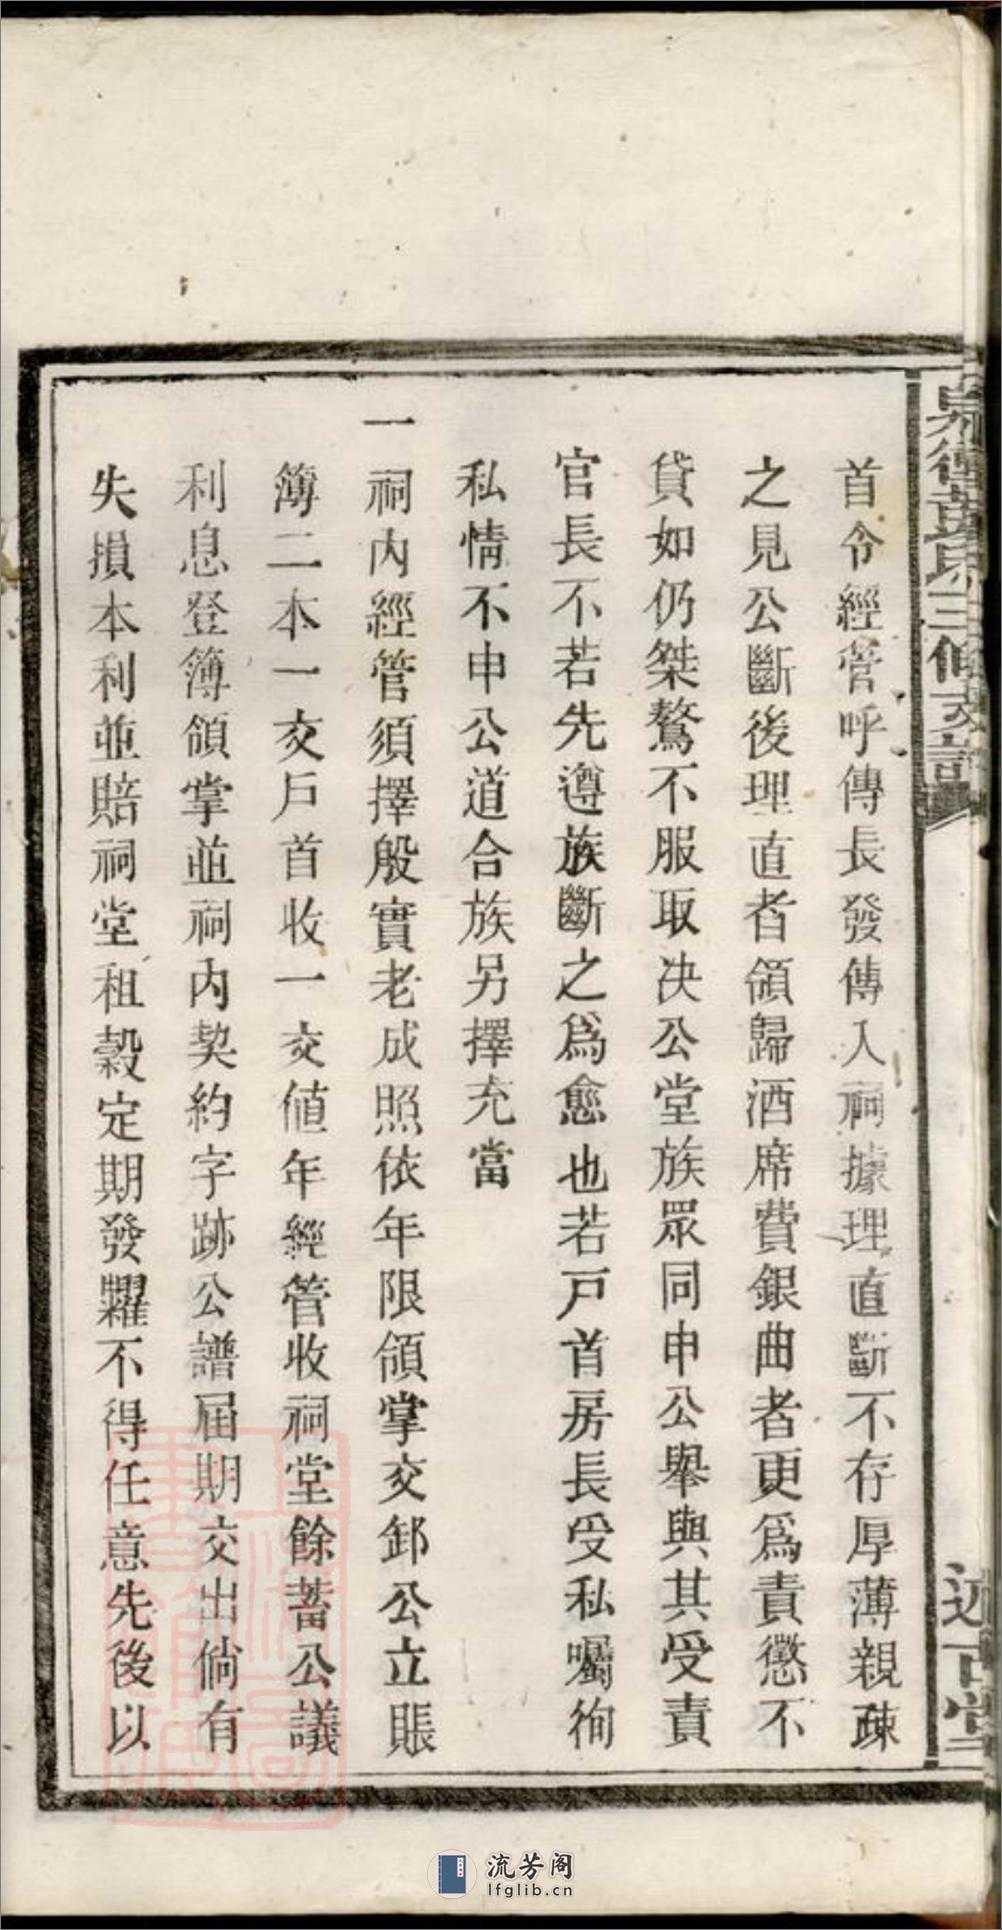 首令經管呼傳長發傳人祠據理直斷不存厚薄親疎
之見公斷後理直者領歸酒席費銀曲者更爲責懲不
貸如仍桀驁不服取決公堂族眾同申公舉與其受責
官長不若先遵族斷之爲愈也若戸首房長受私囑徇
私情不申公道合族另擇充當
一祠內經管須擇殷實老成照依年限領掌交卸公立賬
簿二本一交戸首收一交值年經管收祠堂餘蓄公議
利息登簿領掌並祠內契約字跡公譜屆期交出倘有
失損本利並賠祠堂租穀定期發糶不得任意先後以
流芳阁
lfglib.cn